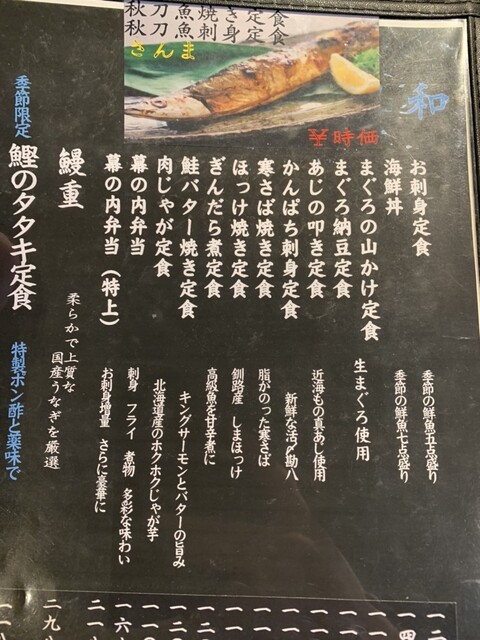 秋刀魚焼き定食
秋刀魚刺身定食
さんま
時価
和
お刺身定食
季節の鮮魚五点盛り
海鮮丼
季節の鮮魚七点盛り
まぐろの山かけ定食
まぐろ納豆定食
生まぐろ使用
あじの叩き定食
近海もの真あじ使用
かんぱち刺身定食
新鮮な活〆勘八
寒さば焼き定食
脂がのった寒さば
ほっけ焼き定食
釧路産 しまほっけ
ぎんだら煮定食
高級魚を甘辛煮に
鮭バター焼き定食
キングサーモンとバターの旨み
肉じゃが定食
北海道産のホクホクじゃが芋
幕の内弁当
刺身 フライ 煮物 多彩な味わい
幕の内弁当(特上)
お刺身増量 さらに豪華に
鰻重
柔らかで上質な
国産うなぎを厳選
季節限定
鰹のタタキ定食
特製ポン酢と薬味で